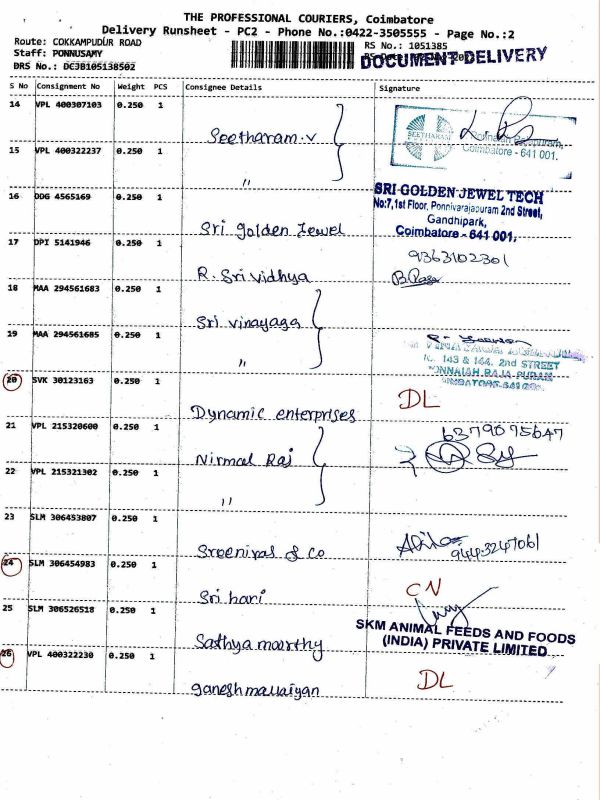 THE PROFESSIONAL COURIERS, Coimbatore
Delivery Runsheet - PC2 - Phone No.:0422-3505555 - Page No.:2
Route: COKKAMPUDUR ROAD
RS No.: 1051385
Staff: PONNUSAMY
DOCUMENT DELIVERY
DRS No.: DCJB105138502
S No Consignment No Weight PCS Consignee Details Signature
14 VPL 400307103 0.250 1
Seetharam.v
SEETHARAM
Coimbatore - 641 001.
15 VPL 400322237 0.250 1
"
16 DDG 4565169 0.250 1
Sri golden Jewel
SRI GOLDEN JEWEL TECH
No:7,1st Floor, Ponnivarajapuram 2nd Street,
Gandhipark,
Coimbatore - 641 001.
17 DPI 5141946 0.250 1
R. Sri vidhya
9363102301
18 MAA 294561683 0.250 1
Sri vinayaga
19 MAA 294561685 0.250 1
"
143 & 144, 2nd STREET
20 SVK 30123163 0.250 1
Dynamic enterprises
DL
21 VPL 215320600 0.250 1
Nirmal Raj
6379075647
22 VPL 215321302 0.250 1
"
23 SLM 306453807 0.250 1
Sreenivas & Co
24 SLM 306454983 0.250 1
Sri hari
CN
25 SLM 306526518 0.250 1
Sathya moorthy
SKM ANIMAL FEEDS AND FOODS
(INDIA) PRIVATE LIMITED
26 VPL 400322230 0.250 1
ganesh mallaiyan
DL